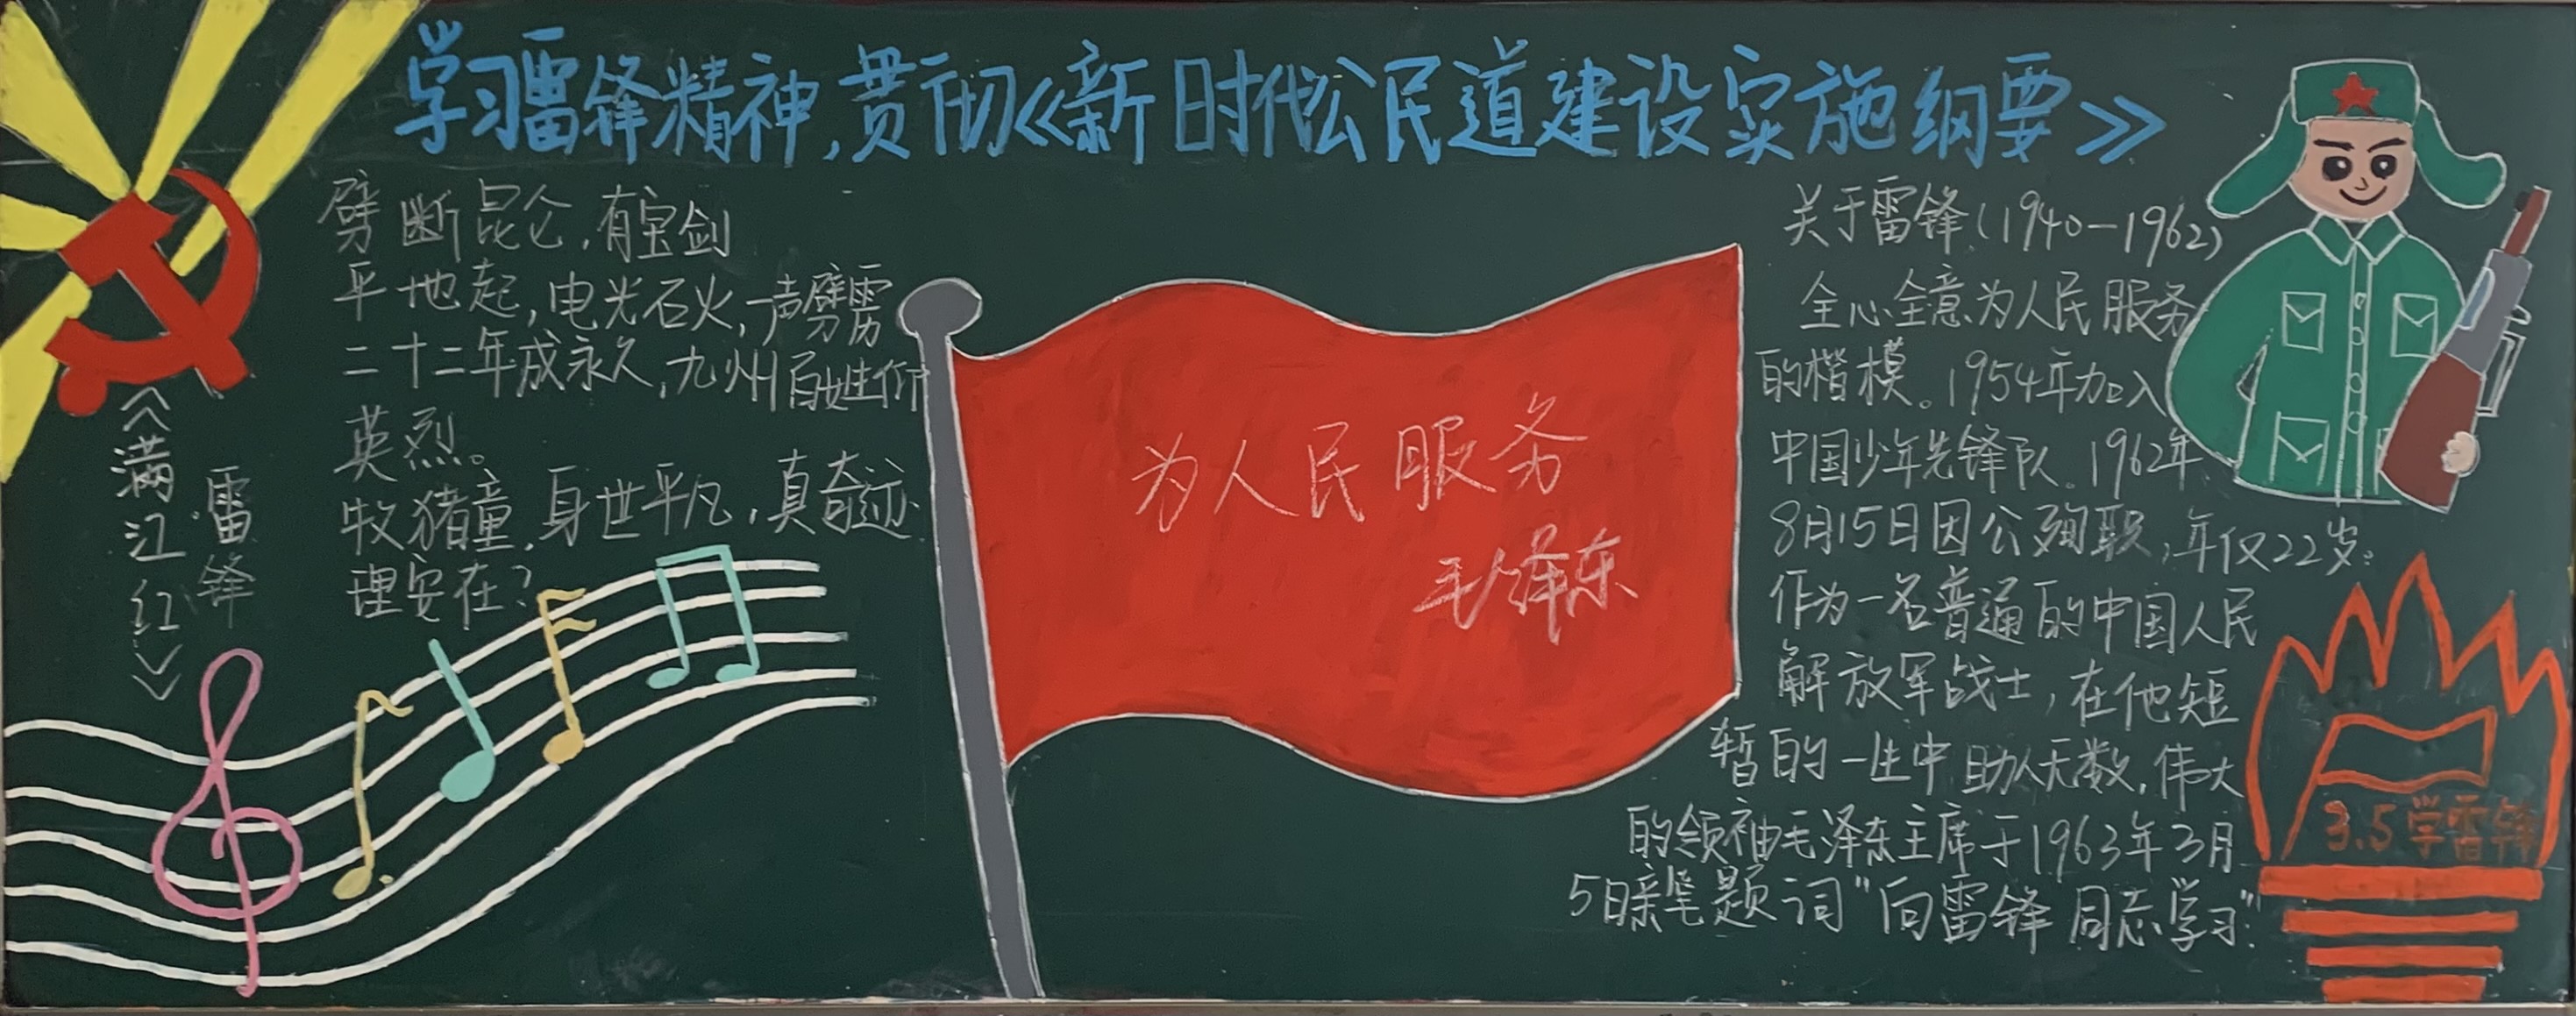 学习雷锋精神，贯彻《新时代公民道建设实施纲要》
劈断昆仑，有宝剑
平地起，电光石火，一声劈雳
二十二年成永久，九州百姓仰
英烈。
牧猪童，身世平凡，真奇迹
理安在？
《满江红》
雷锋
为人民服务
毛泽东
关于雷锋（1940—1962）
全心全意为人民服务
的楷模。1954年加入
中国少年先锋队。1962年
8月15日因公殉职，年仅22岁。
作为一名普通的中国人民
解放军战士，在他短
暂的一生中助人无数，伟大
的领袖毛泽东主席于1963年3月
5日亲笔题词“向雷锋同志学习”
3.5学雷锋